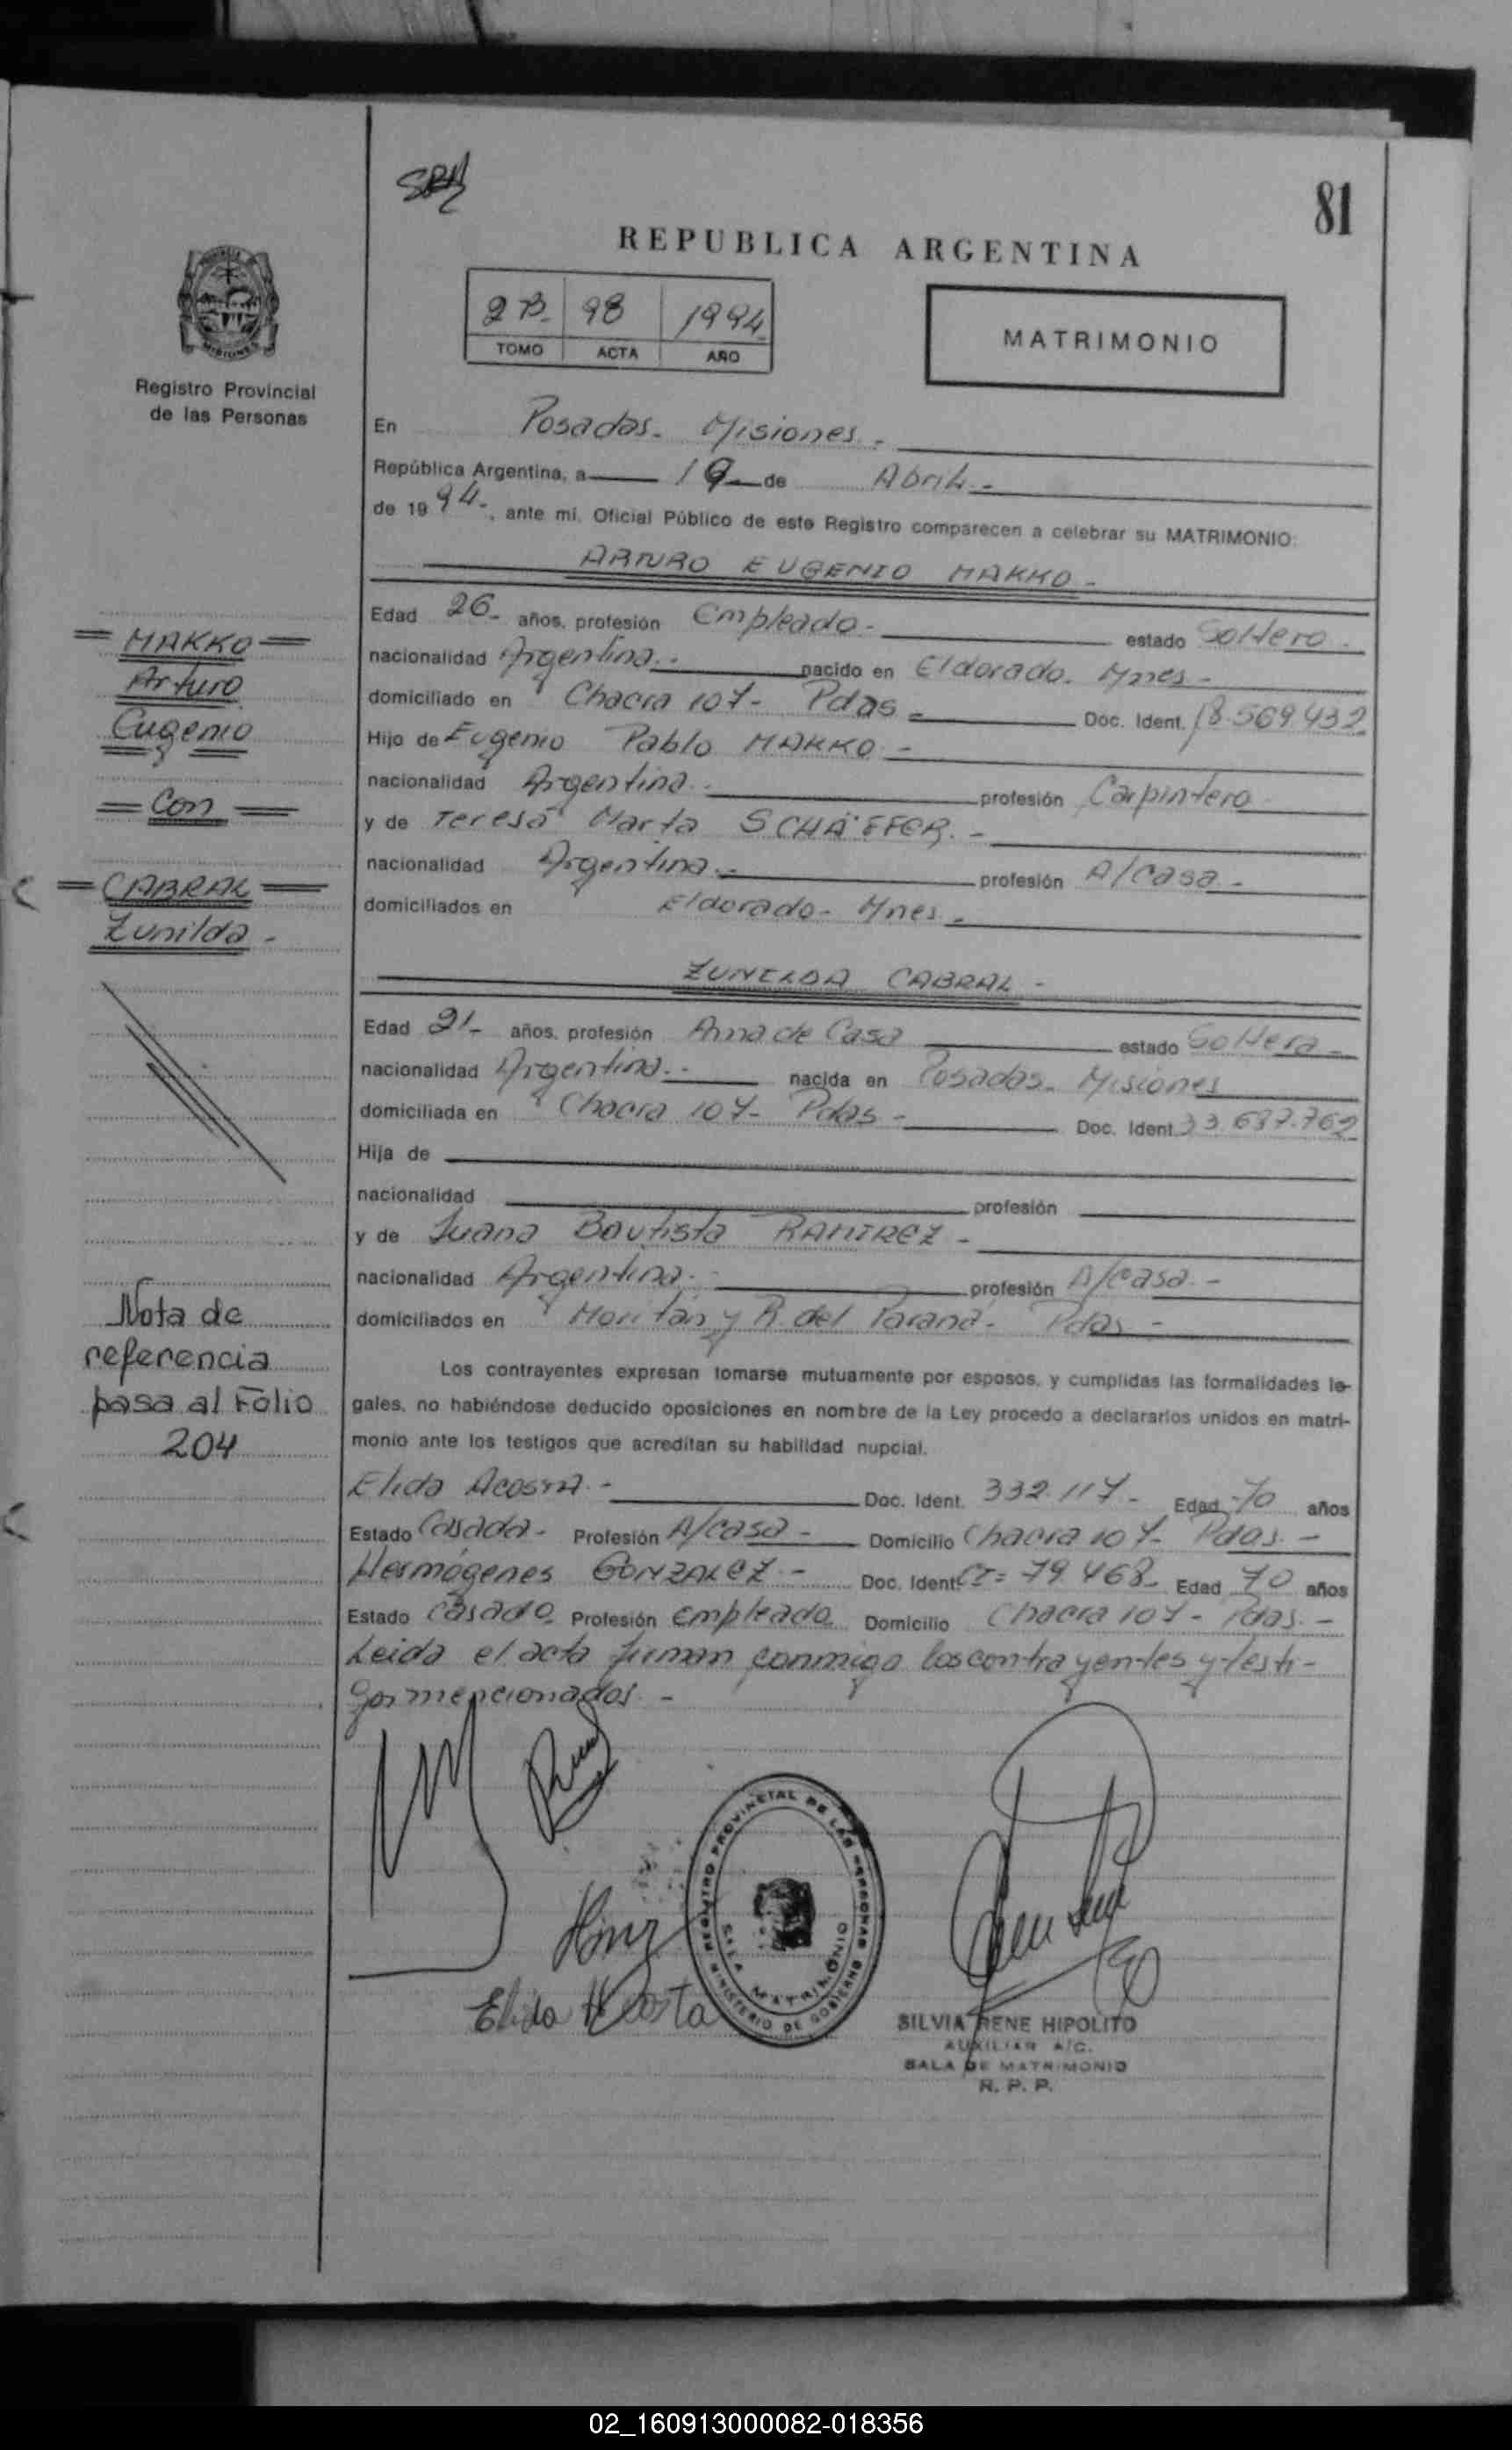 81
REPUBLICA ARGENTINA
2 B- 98 1994
TOMO ACTA AÑO
MATRIMONIO
Registro Provincial
de las Personas
En Posadas- Misiones.-
República Argentina, a 19 de Abril.-
de 1994-, ante mi, Oficial Público de este Registro comparecen a celebrar su MATRIMONIO:
ARTURO EUGENIO MAKKO-
Edad 26- años, profesión Empleado- estado Soltero-
nacionalidad Argentina.- nacido en Eldorado. Mnes-
domiciliado en Chacra 107- Pdas- Doc. Ident. 18.569.432
Hijo de Eugenio Pablo MAKKO-
nacionalidad Argentina.- profesión Carpintero
y de Teresa Marta SCHÄFFER.-
nacionalidad Argentina.- profesión A/casa-
domiciliados en Eldorado- Mnes-
ZUNILDA CABRAL-
Edad 21- años, profesión Ama de Casa estado Soltera-
nacionalidad Argentina.- nacida en Posadas- Misiones
domiciliada en Chacra 107- Pdas- Doc. Ident. 33.637.762
Hija de
nacionalidad profesión
y de Juana Bautista RAMIREZ-
nacionalidad Argentina.- profesión A/casa.-
domiciliados en y R. del Paraná- Pdas-
Los contrayentes expresan tomarse mutuamente por esposos, y cumplidas las formalidades le-
gales, no habiéndose deducido oposiciones en nombre de la Ley procedo a declararlos unidos en matri-
monio ante los testigos que acreditan su habilidad nupcial.
Elida ACOSTA.- Doc. Ident. 332.117- Edad 70 años
Estado Casada- Profesión A/casa- Domicilio Chacra 107- Pdas.-
Hermógenes GONZALEZ- Doc. Ident. CI= 79.468- Edad 70 años
Estado Casado Profesión Empleado Domicilio Chacra 107- Pdas.-
Leida el acta firman conmigo los contrayentes y testi-
gos mencionados.-
MAKKO
Arturo
Eugenio
Con
CABRAL
Zunilda-
Nota de
referencia
pasa al Folio
204
Elida Acosta
REGISTRO PROVINCIAL DE LAS PERSONAS
MINISTERIO DE GOBIERNO
SALA MATRIMONIO
SILVIA RENE HIPOLITO
AUXILIAR A/C.
SALA DE MATRIMONIO
R. P. P.
02_160913000082-018356